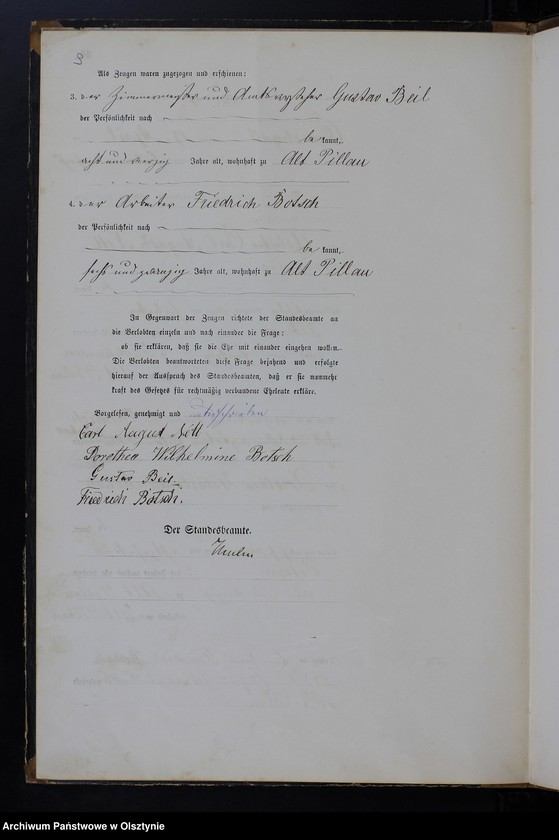 Als Zeugen waren zugezogen und erschienen:
3. der Zimmermeister und Amtsvorsteher Gustav Beil
der Persönlichkeit nach
be kannt,
acht und vierzig Jahre alt, wohnhaft zu Alt Pillau
4. der Arbeiter Friedrich Botsch
der Persönlichkeit nach
be kannt,
sechs und zwanzig Jahre alt, wohnhaft zu Alt Pillau
In Gegenwart der Zeugen richtete der Standesbeamte an
die Verlobten einzeln und nach einander die Frage:
ob sie erklären, daß sie die Ehe mit einander eingehen wollen.
Die Verlobten beantworteten diese Frage bejahend und erfolgte
hierauf der Ausspruch des Standesbeamten, daß er sie nunmehr
kraft des Gesetzes für rechtmäßig verbundene Eheleute erkläre.
Vorgelesen, genehmigt und unterschrieben
Carl August
Dorothea Wilhelmine Botsch
Gustav Beil.
Friedrich Botsch.
Der Standesbeamte.
Archiwum Państwowe w Olsztynie